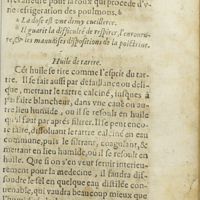 ne refrigeration des poulmons.
La dose est une demy cueilleree.
Il guarit la difficulté de respirer, l'enroueu-
re, & les mauvaises dispositions de la poictrine.
Huile de tartre.
Cét huile se tire comme l'esprit du tar-
tre. Il se fait aussi par défaillance ou deli-
que, mettant le tartre calciné, jusques à
faire blancheur, dans une cave ou au-
tre lieu humide, ou il se resoult en huile
qu'il faut apres filtrer. Il se peut enco-
faire, dissoluant le tartre calciné en eau
commune, puis le filtrant, coagulant, &
mettant en lieu humide, où il se resoult en
huile. Si on ne s'en veut servir interieu-
rement pour la medecine, il faudra dis-
soudre le sel en quelque eau distilée con-
venable, qui vaudra beaucoup mieux que